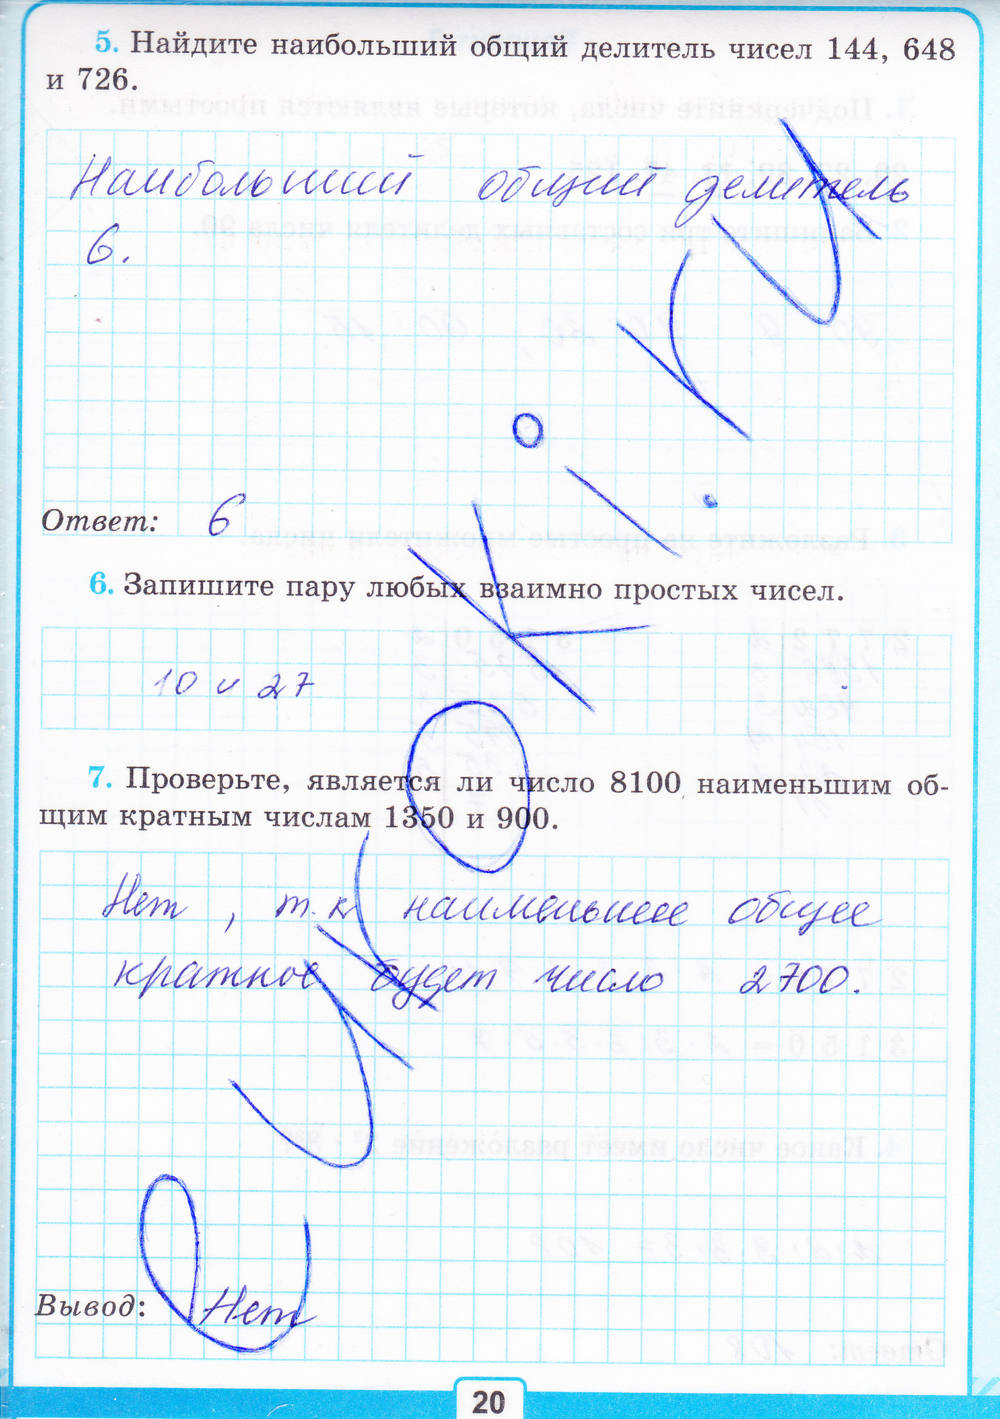 5. Найдите наибольший общий делитель чисел 144, 648
и 726.
Наибольший общий делитель
6.
Ответ: 6
6. Запишите пару любых взаимно простых чисел.
10 и 27
7. Проверьте, является ли число 8100 наименьшим об-
щим кратным числам 1350 и 900.
Нет, т.к наименьшее общее
кратное будет число 2700.
Вывод: Нет
20